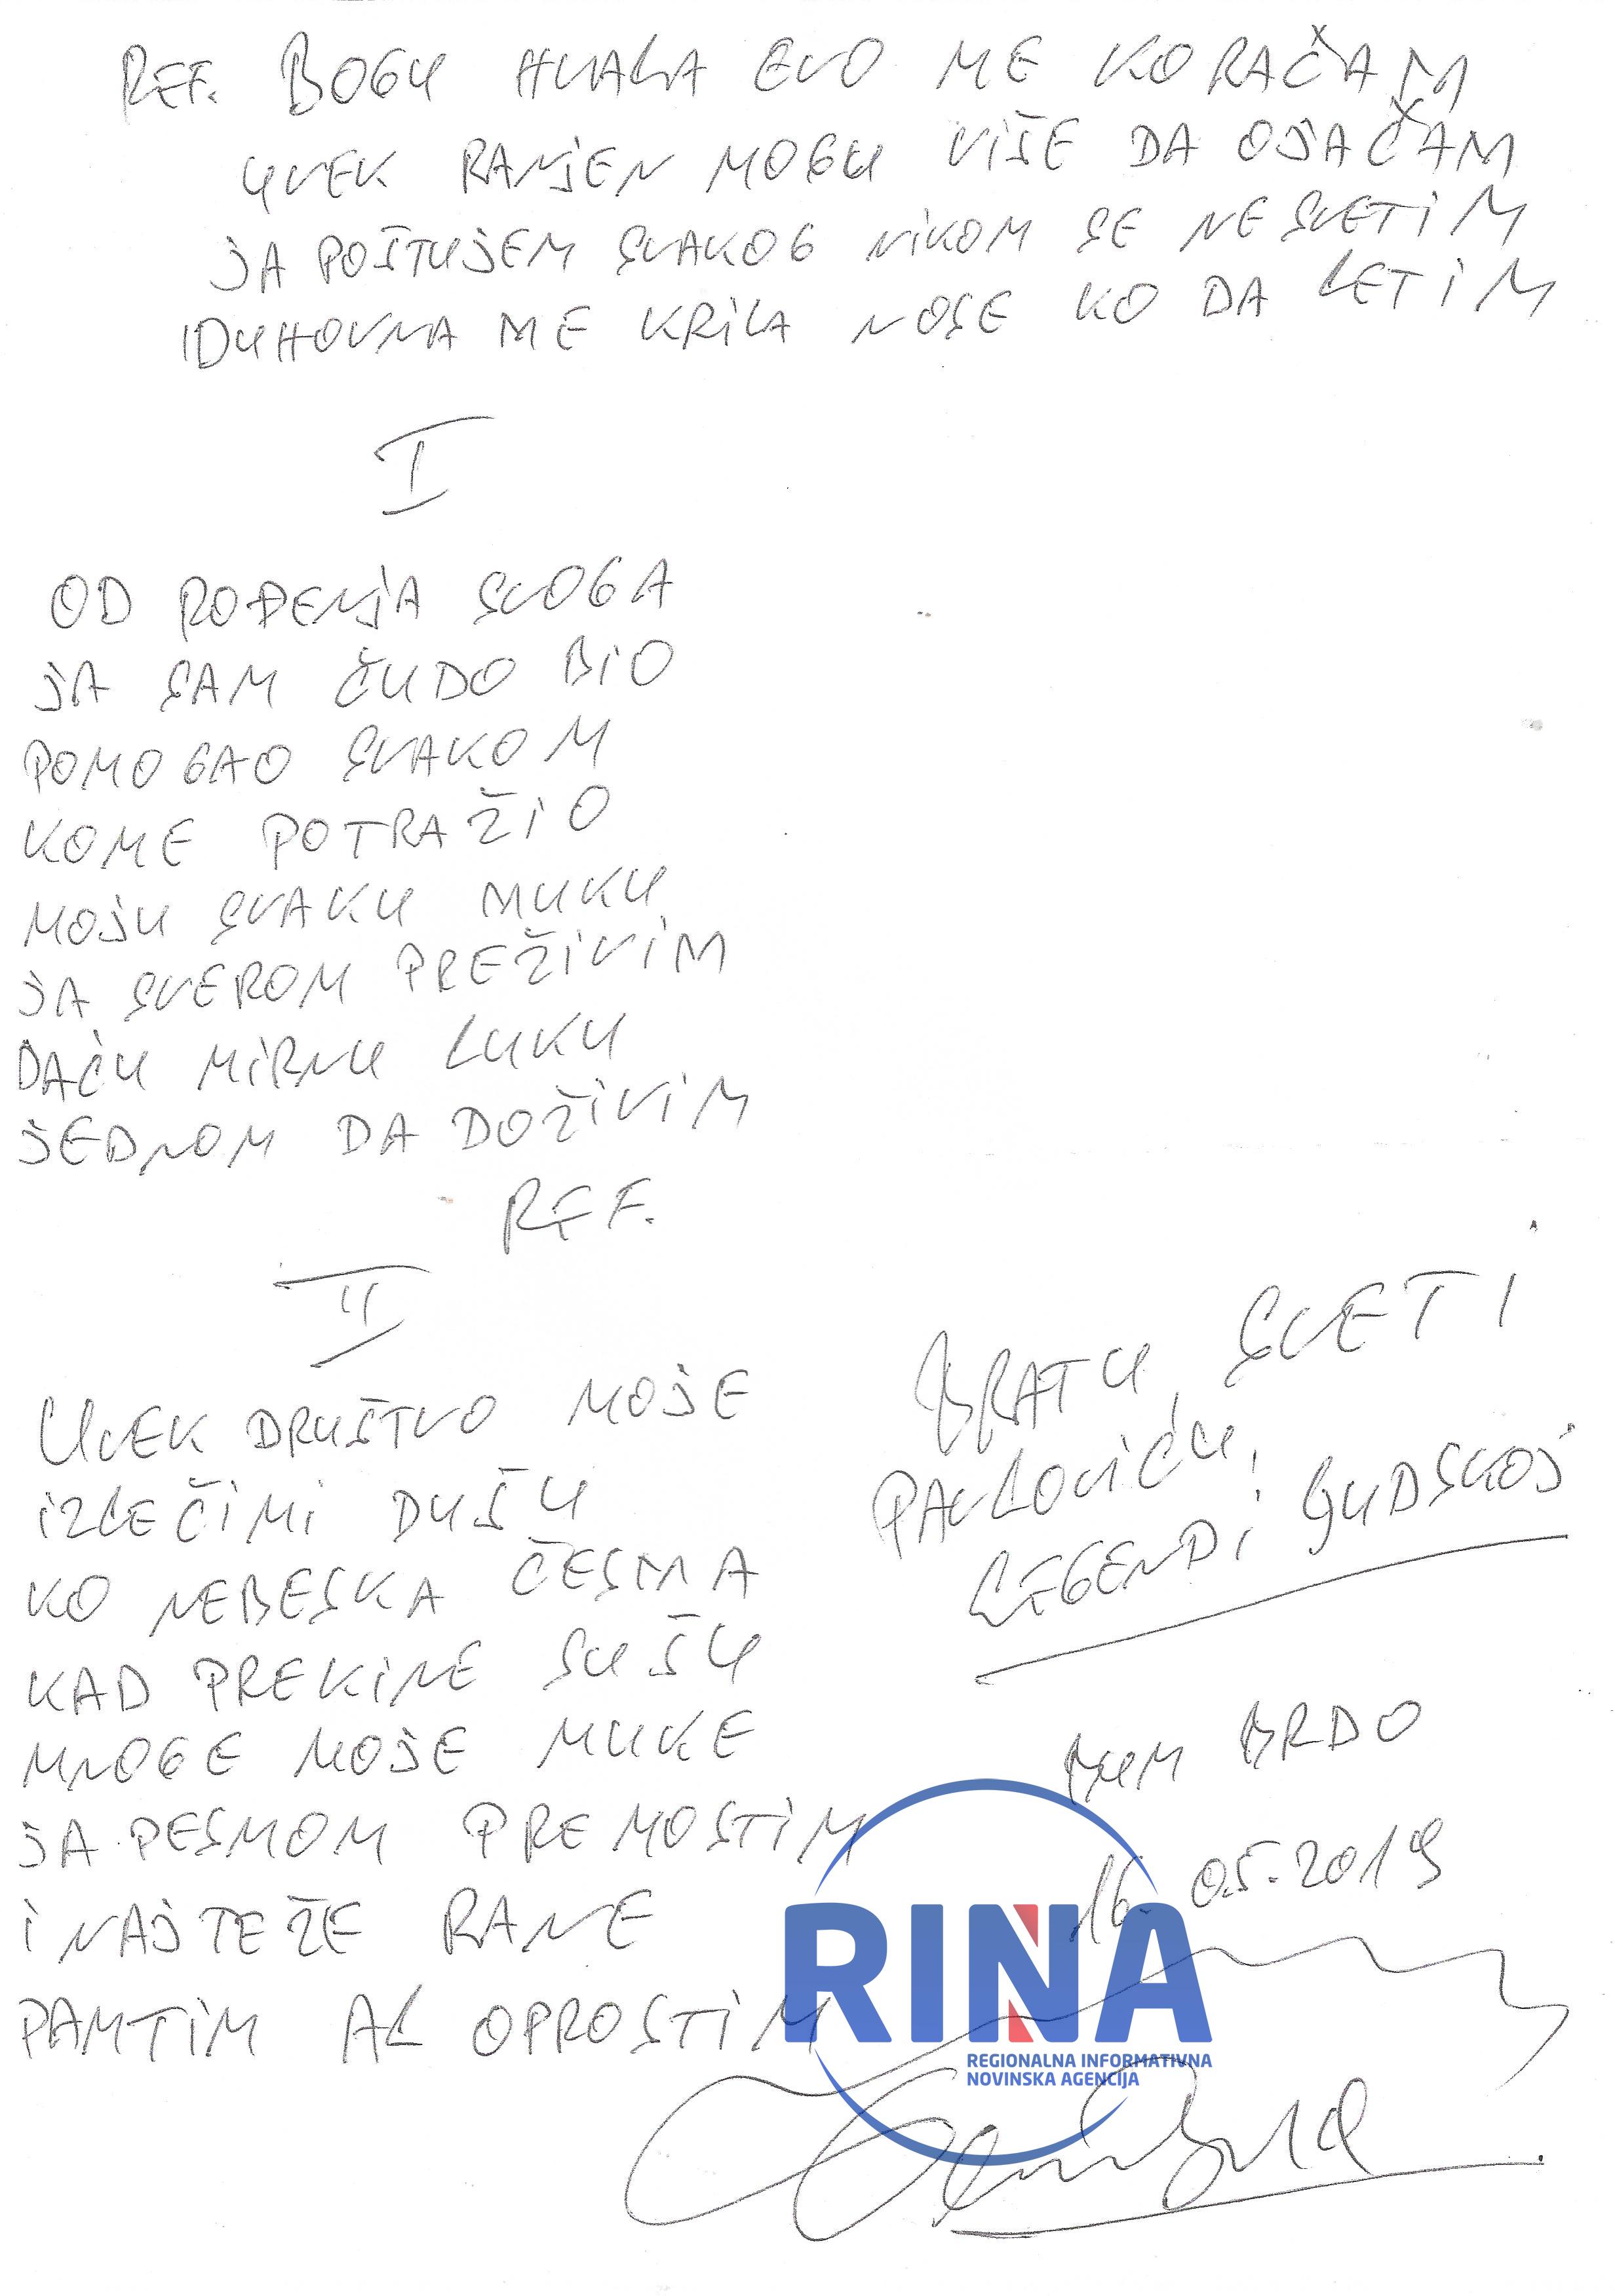 REF. BOGU HVALA EVO ME KORAČAM
UVEK RANJEN MOGU VIŠE DA OJAČAM
JA POŠTUJEM SVAKOG NIKOM SE NE SVETIM
DUHOVNA ME KRILA NOSE KO DA LETIM
I
OD ROĐENJA SVOGA
JA SAM ČUDO BIO
POMOGAO SVAKOM
KOME POTRAŽIO
MOJU SVAKU MUKU
JA SVEROM PREŽIVIM
DAĆU MIRNU LUKU
JEDNOM DA DOŽIVIM
REF.
II
UVEK DRUŠTVO MOJE
IZLEČIMI DUŠU
KO NEBESKA ČESMA
KAD PREKINE SUŠU
MNOGE MOJE MUKE
JA PESMOM PREMOSTIM
I NAJTEŽE RANE
PAMTIM AL OPROSTIM
BRATU SVETI
PAVLOVIĆU,
LEGENDI LJUDSKOJ
BRDO
16. 05. 2019
RINA
REGIONALNA INFORMATIVNA
NOVINSKA AGENCIJA